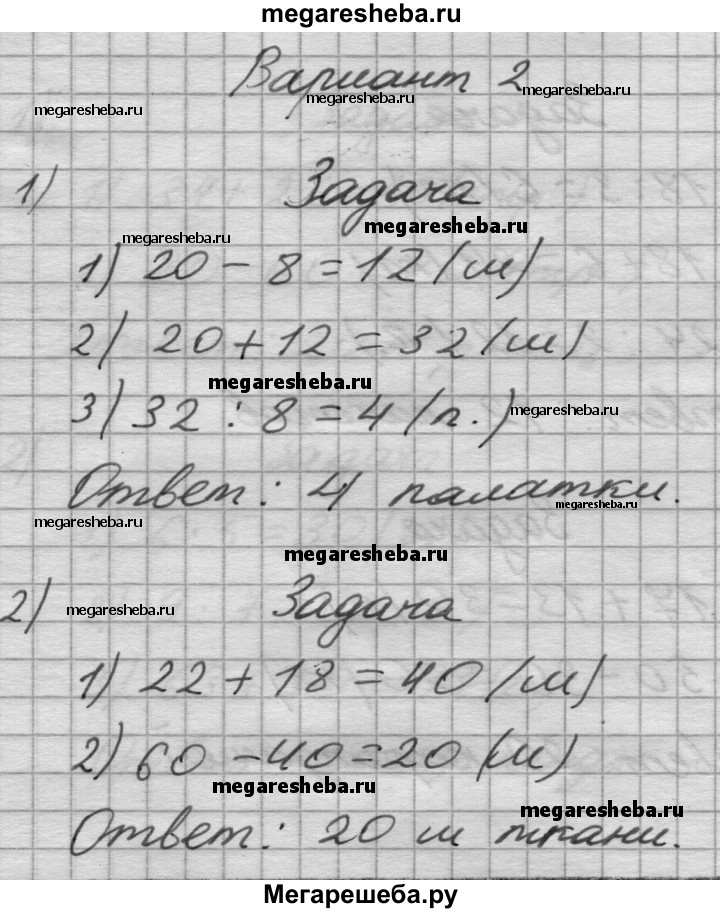 megaresheba.ru
Вариант 2
megaresheba.ru megaresheba.ru megaresheba.ru
1) Задача
megaresheba.ru megaresheba.ru
1) 20 - 8 = 12 (м)
2) 20 + 12 = 32 (м)
megaresheba.ru
3) 32 : 8 = 4 (п.) megaresheba.ru
Ответ: 4 палатки.
megaresheba.ru megaresheba.ru
megaresheba.ru
2) megaresheba.ru Задача
1) 22 + 18 = 40 (м)
2) 60 - 40 = 20 (м)
megaresheba.ru
megaresheba.ru
Ответ: 20 м ткани.
Мегарешеба.ру